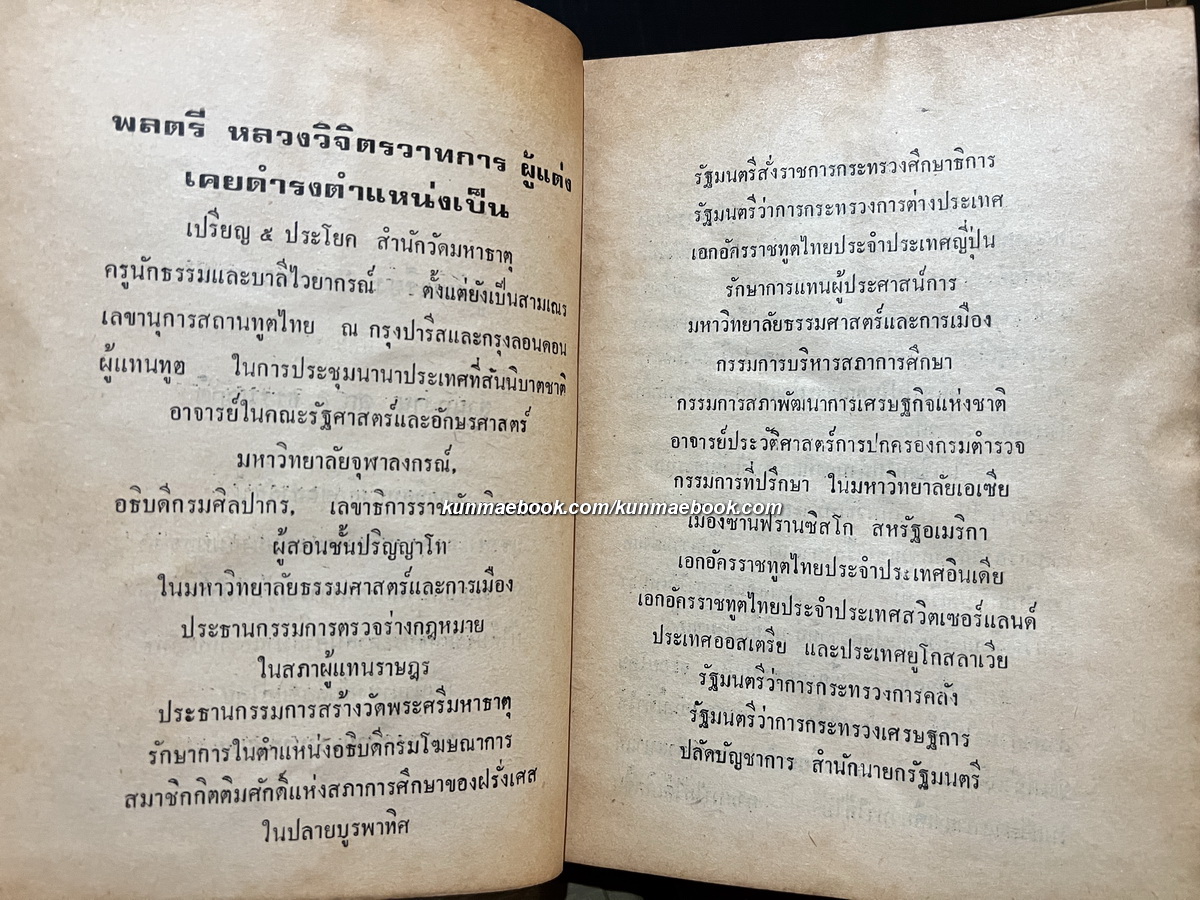 พลตรี หลวงวิจิตรวาทการ ผู้แต่ง
เคยดำรงตำแหน่งเป็น
เปรียญ ๕ ประโยค สำนักวัดมหาธาตุ
ครูนักธรรมและบาลีไวยากรณ์ ตั้งแต่ยังเป็นสามเณร
เลขานุการสถานทูตไทย ณ กรุงปารีสและกรุงลอนดอน
ผู้แทนทูต ในการประชุมนานาประเทศที่สันนิบาตชาติ
อาจารย์ในคณะรัฐศาสตร์และอักษรศาสตร์
มหาวิทยาลัยจุฬาลงกรณ์,
อธิบดีกรมศิลปากร, เลขาธิการ
ผู้สอนชั้นปริญญาโท
ในมหาวิทยาลัยธรรมศาสตร์และการเมือง
ประธานกรรมการตรวจร่างกฎหมาย
ในสภาผู้แทนราษฎร
ประธานกรรมการสร้างวัดพระศรีมหาธาตุ
รักษาการในตำแหน่งอธิบดีกรมโฆษณาการ
สมาชิกกิตติมศักดิ์แห่งสภาการศึกษาของฝรั่งเศส
ในปลายบูรพาทิศ
รัฐมนตรีสั่งราชการกระทรวงศึกษาธิการ
รัฐมนตรีว่าการกระทรวงการต่างประเทศ
เอกอัครราชทูตไทยประจำประเทศญี่ปุ่น
รักษาการแทนผู้ประศาสน์การ
มหาวิทยาลัยธรรมศาสตร์และการเมือง
กรรมการบริหารสภาการศึกษา
กรรมการสภาพัฒนาการเศรษฐกิจแห่งชาติ
อาจารย์ประวัติศาสตร์การปกครองกรมตำรวจ
กรรมการที่ปรึกษา ในมหาวิทยาลัยเอเซีย
kunmaebook.com/kunmaebook.com
เมืองซานฟรานซิสโก สหรัฐอเมริกา
เอกอัครราชทูตไทยประจำประเทศอินเดีย
เอกอัครราชทูตไทยประจำประเทศสวิตเซอร์แลนด์
ประเทศออสเตรีย และประเทศยูโกสลาเวีย
รัฐมนตรีว่าการกระทรวงการคลัง
รัฐมนตรีว่าการกระทรวงเศรษฐการ
ปลัดบัญชาการ สำนักนายกรัฐมนตรี